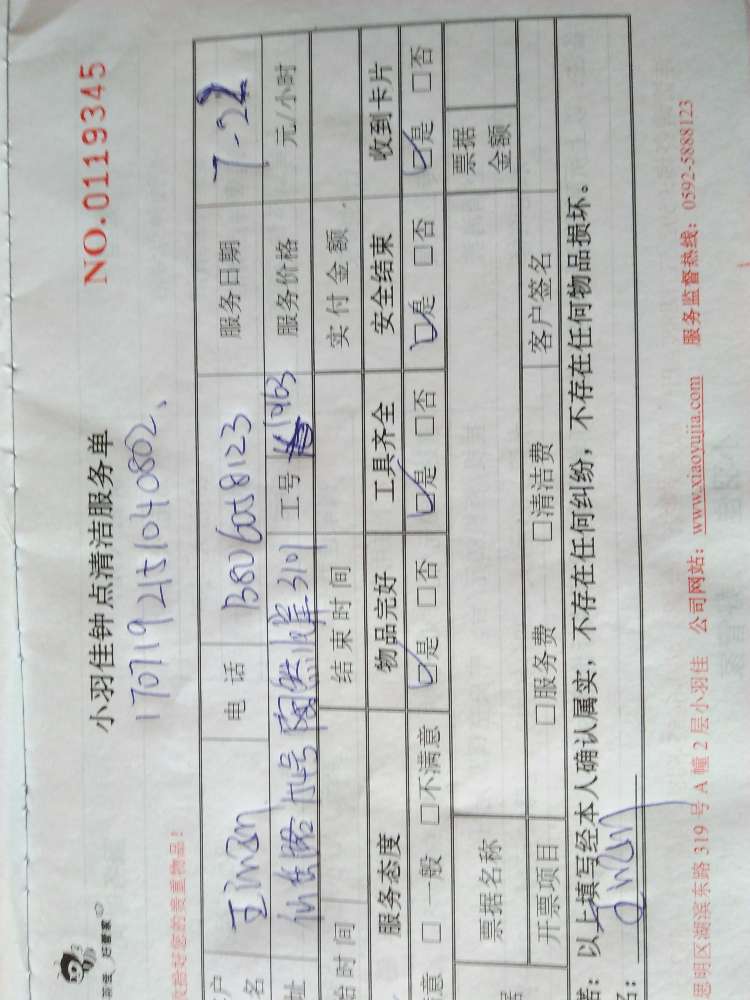 好管家
小羽佳钟点清洁服务单
NO.0119345
1707192151040802、
收拾好您的贵重物品！
户名 电话 服务日期 7-22
址 3101 工号 1963 服务价格 元/小时
始时间 结束时间 实付金额
服务态度 物品完好 工具齐全 安全结束 收到卡片
意 □一般 □不满意 ☑是 □否 ☑是 □否 ☑是 □否 ☑是 □否
票据名称 票据金额
开票项目 □服务费 □清洁费 客户签名
诺：以上填写经本人确认属实，不存在任何纠纷，不存在任何物品损坏。
思明区湖滨东路 319 号 A 幢 2 层小羽佳 公司网站：www.xiaoyujia.com 服务监督热线：0592-5888123